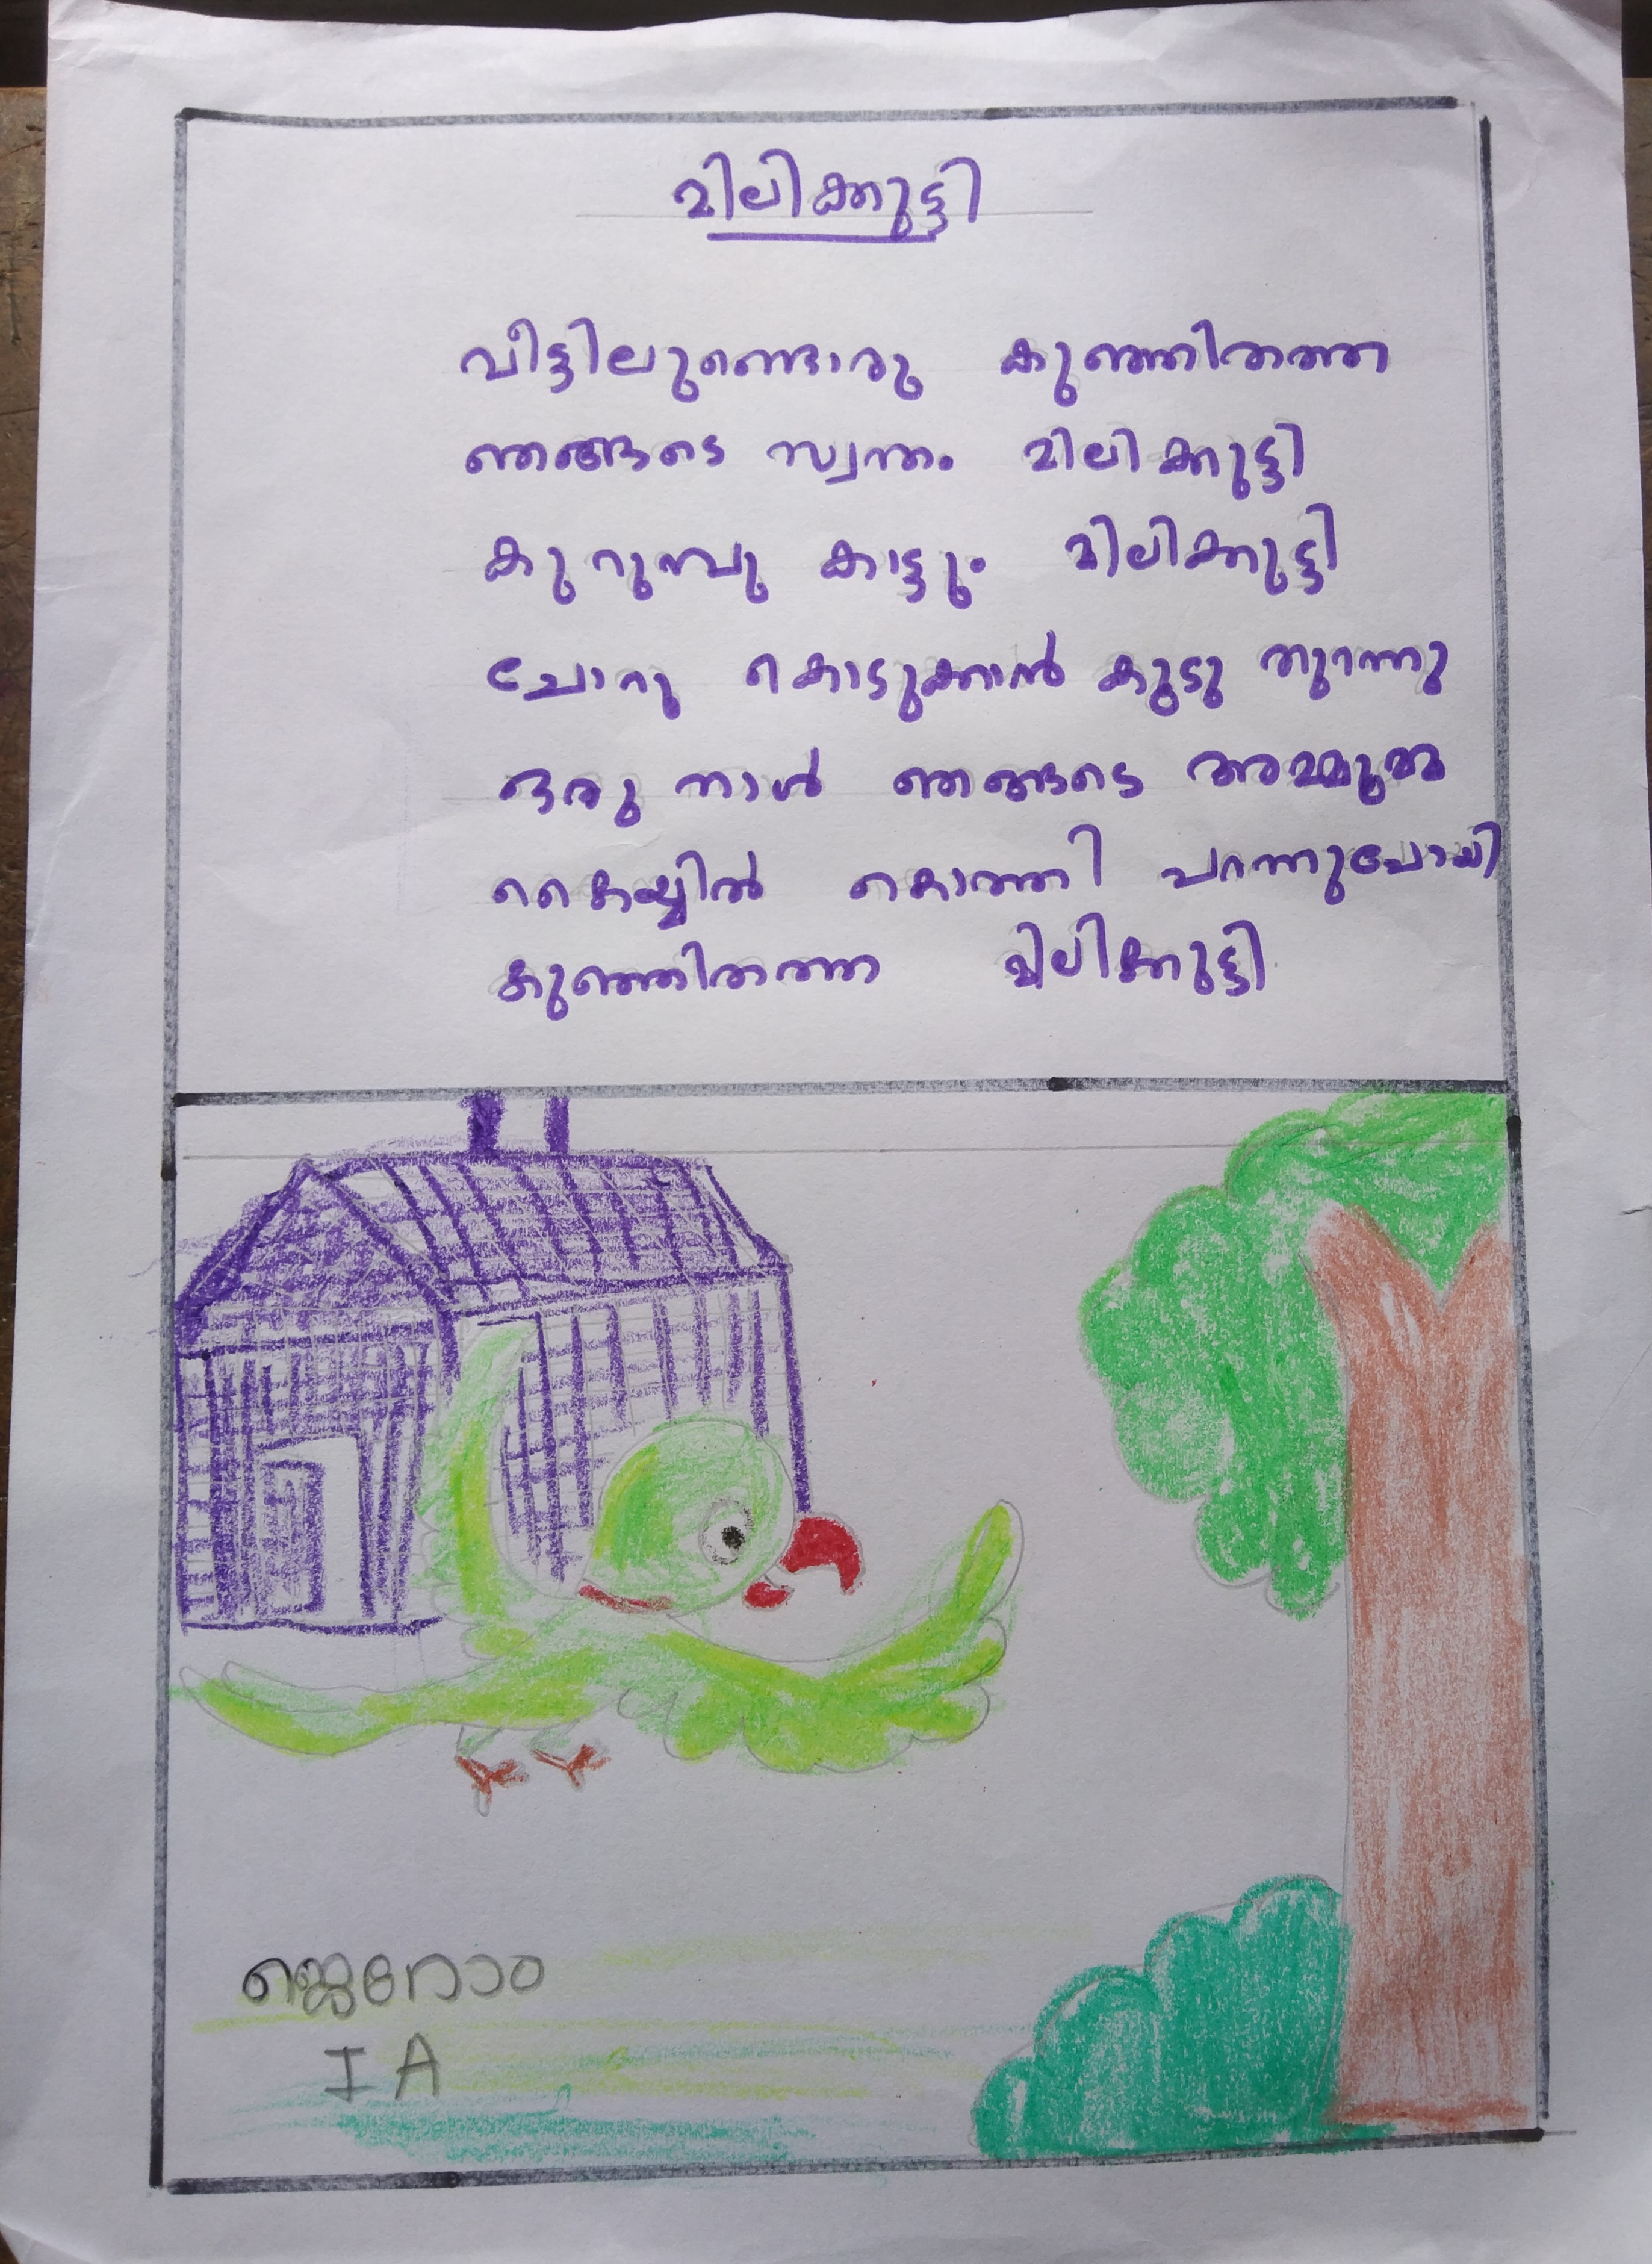 മിലിക്കുട്ടി
വീട്ടിലുണ്ടൊരു കുഞ്ഞിതത്ത
ഞങ്ങടെ സ്വന്തം മിലിക്കുട്ടി
കുറുമ്പു കാട്ടും മിലിക്കുട്ടി
ചോറു കൊടുക്കാൻ കൂടു തുറന്നു
ഒരു നാൾ ഞങ്ങടെ അമ്മൂമ്മ
കൈയ്യിൽ കൊത്തി പറന്നുപോയി
കുഞ്ഞിതത്ത മിലിക്കുട്ടി
ജെറോം
I A